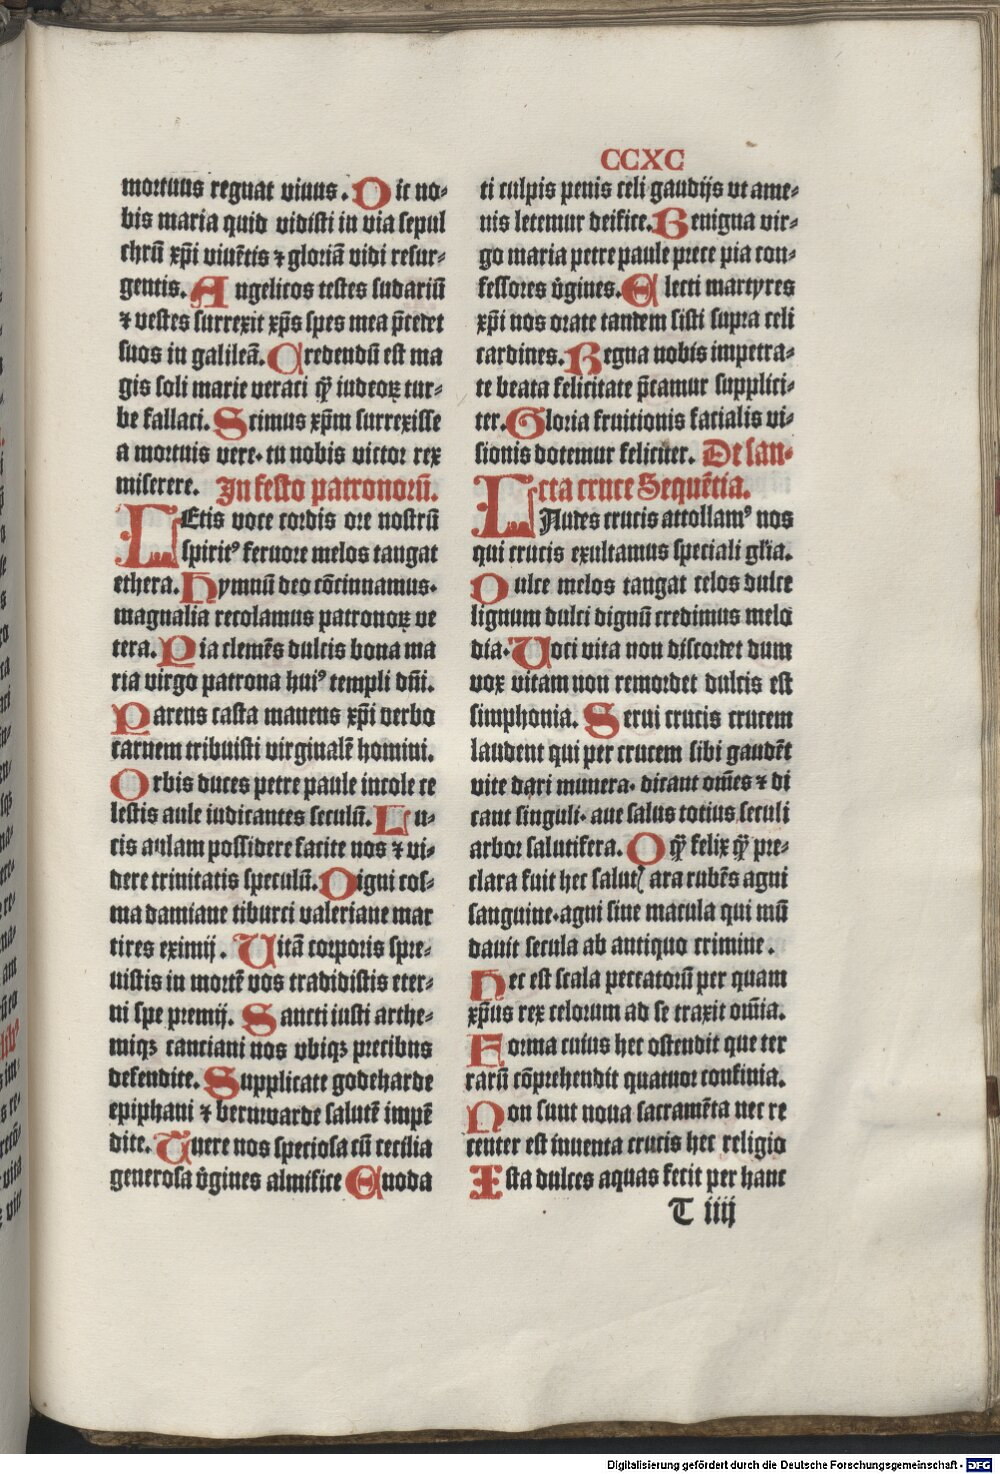 CCXC
mortuus regnat viuus. Dic no-
bis maria quid vidisti in via sepul
chrū xp̄i viuētis ⁊ gloriā vidi resur-
gentis. Angelicos testes sudariū
⁊ vestes surrexit xp̄s spes mea p̄cedet
suos in galileā. Credendū est ma
gis soli marie veraci q̄ȝ iudeoꝝ tur-
be fallaci. Scimus xp̄m surrexisse
a mortuis vere. tu nobis victor rex
miserere. In festo patronorū.
LEtis voce cordis ore nostrū
spiritꝰ feruore melos tangat
ethera. Hymnū deo cōcinnamus.
magnalia recolamus patronoꝝ ve
tera. Pia clemēs dulcis bona ma
ria virgo patrona huiꝰ templi dn̄i.
Parens casta manens xp̄i verbo
carnem tribuisti virginalē homini.
Orbis duces petre paule incole ce
lestis aule iudicantes seculū. Lu-
cis aulam possidere facite nos ⁊ vi-
dere trinitatis speculū. Digni cos-
ma damiane tiburci valeriane mar
tires eximij. Uitā corporis spre-
uistis in mortē vos tradidistis eter-
ni spe premij. Sancti iusti arthe-
miqꝫ canciani nos vbiqꝫ precibus
defendite. Supplicate godeharde
epiphani ⁊ bernwarde salutē impē
dite. Tuere nos speciosa cū cecilia
generosa v̄gines almifice Enoda
ti culpis penis celi gaudijs vt ame-
nis letemur deifice. Benigna vir-
go maria petre paule prece pia con-
fessores v̄gines. Electi martyres
xp̄i nos orate tandem sisti supra celi
cardines. Regna nobis impetra-
te beata felicitate p̄camur supplici-
ter. Gloria fruitionis facialis vi-
sionis dotemur feliciter. De san-
cta cruce Sequētia.
LAudes crucis attollamꝰ nos
qui crucis exultamus speciali gl̄ia.
Dulce melos tangat celos dulce
lignum dulci dignū credimus melo
dia. Uoci vita non discordet dum
vox vitam non remordet dulcis est
simphonia. Serui crucis crucem
laudent qui per crucem sibi gaudēt
vite dari munera. dicant om̄es ⁊ di
cant singuli. aue salus totius seculi
arbor salutifera. O q̄ȝ felix q̄ȝ pre-
clara fuit hec salutꝭ ara rubēs agni
sanguine. agni sine macula qui mū
dauit secula ab antiquo crimine.
Hec est scala peccatorū per quam
xp̄us rex celorum ad se traxit om̄ia.
Forma cuius hec ostendit que ter
rarū cōprehendit quatuor confinia.
Non sunt noua sacramēta nec re
center est inuenta crucis hec religio
Ista dulces aquas fecit per hanc
T iiij
Digitalisierung gefördert durch die Deutsche Forschungsgemeinschaft - DFG